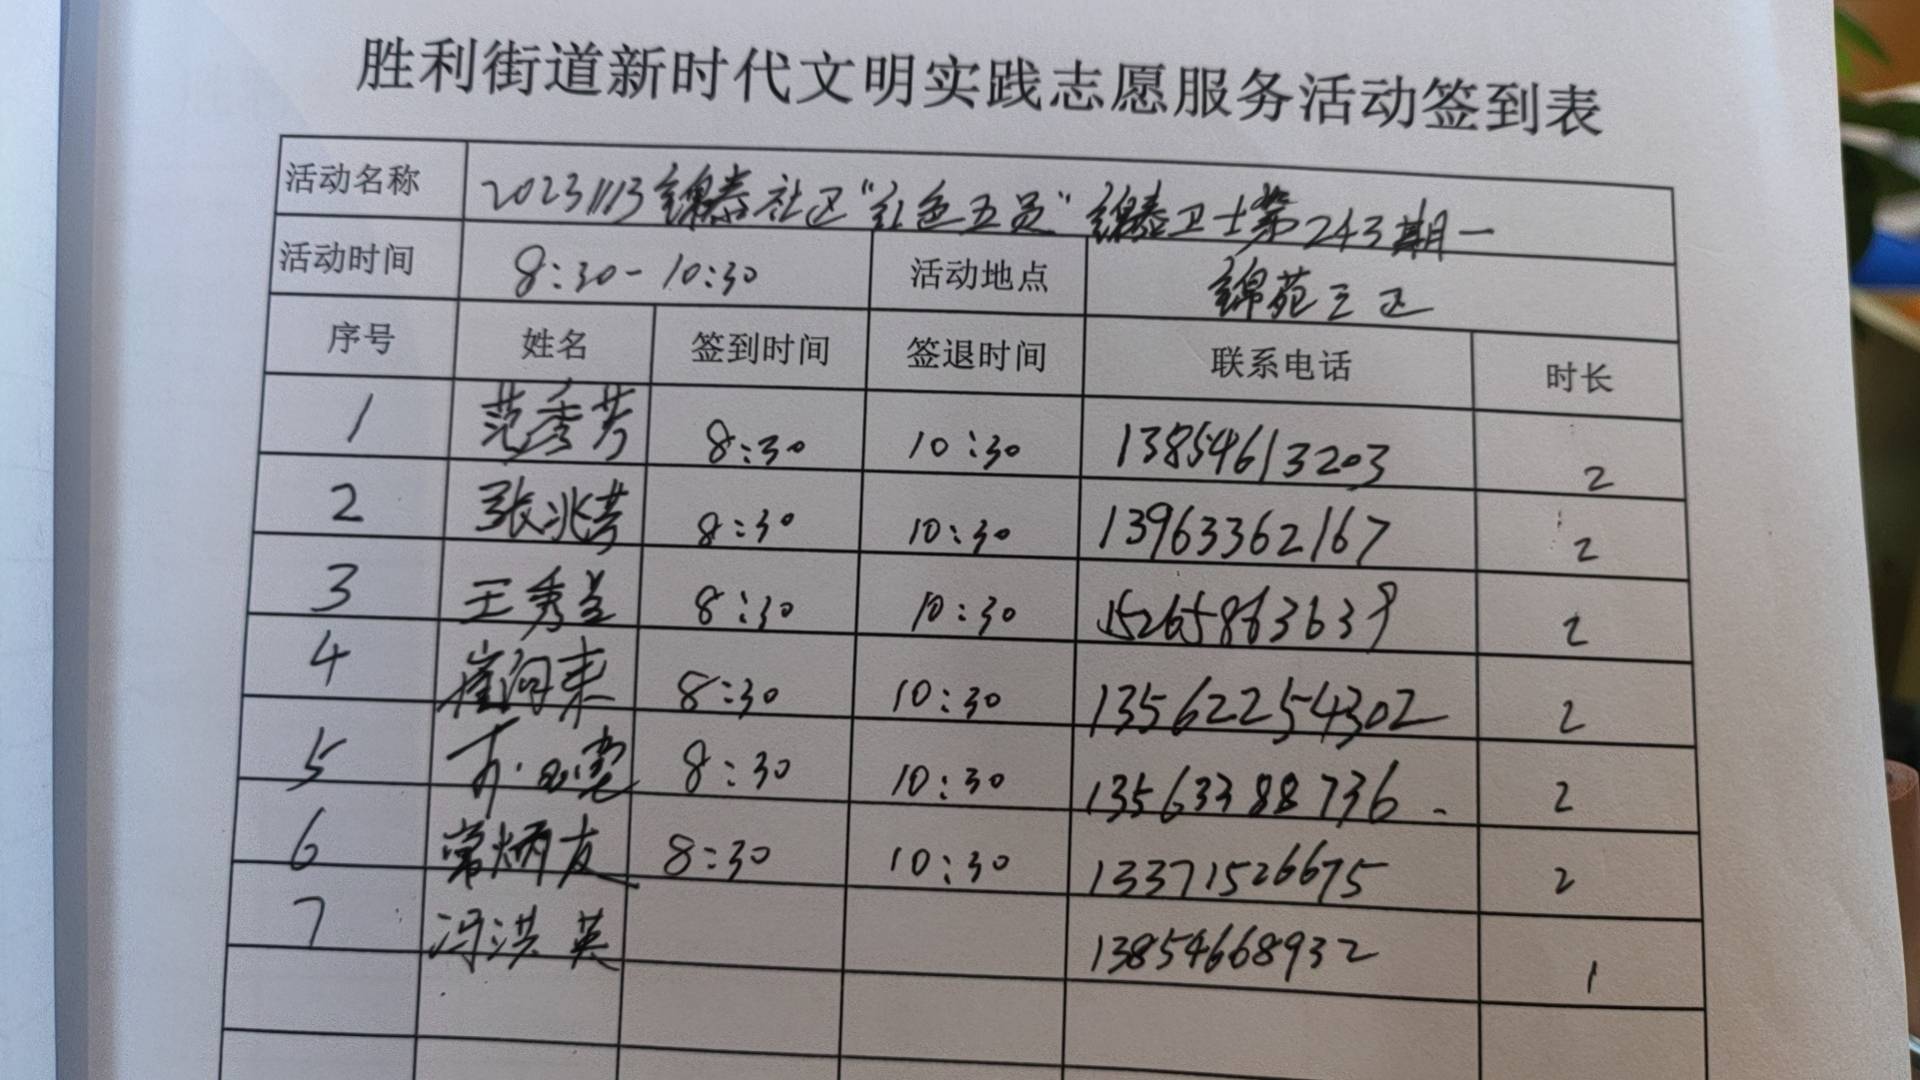 胜利街道新时代文明实践志愿服务活动签到表
活动名称 20231113锦泰社区“红色五员”锦泰卫士第243期一
活动时间 8:30-10:30 活动地点 锦苑三区
序号 姓名 签到时间 签退时间 联系电话 时长
1 范秀芳 8:30 10:30 13854613203 2
2 张兆芳 8:30 10:30 13963362167 2
3 王秀兰 8:30 10:30 15265863639 2
4 崔向来 8:30 10:30 13562254302 2
5 8:30 10:30 13563388736 2
6 常炳友 8:30 10:30 13371526675 2
7 冯洪英 13854668932 1